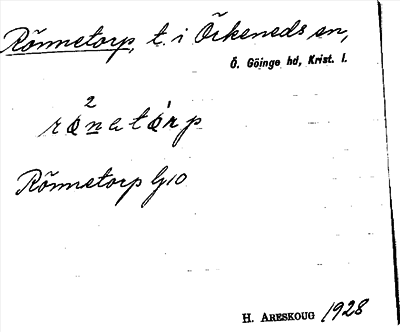 Rönnetorp, t. i Örkeneds sn,
Ö. Göinge hd, Krist. l.
2
Rönnetorp G10
H. ARESKOUG 1928